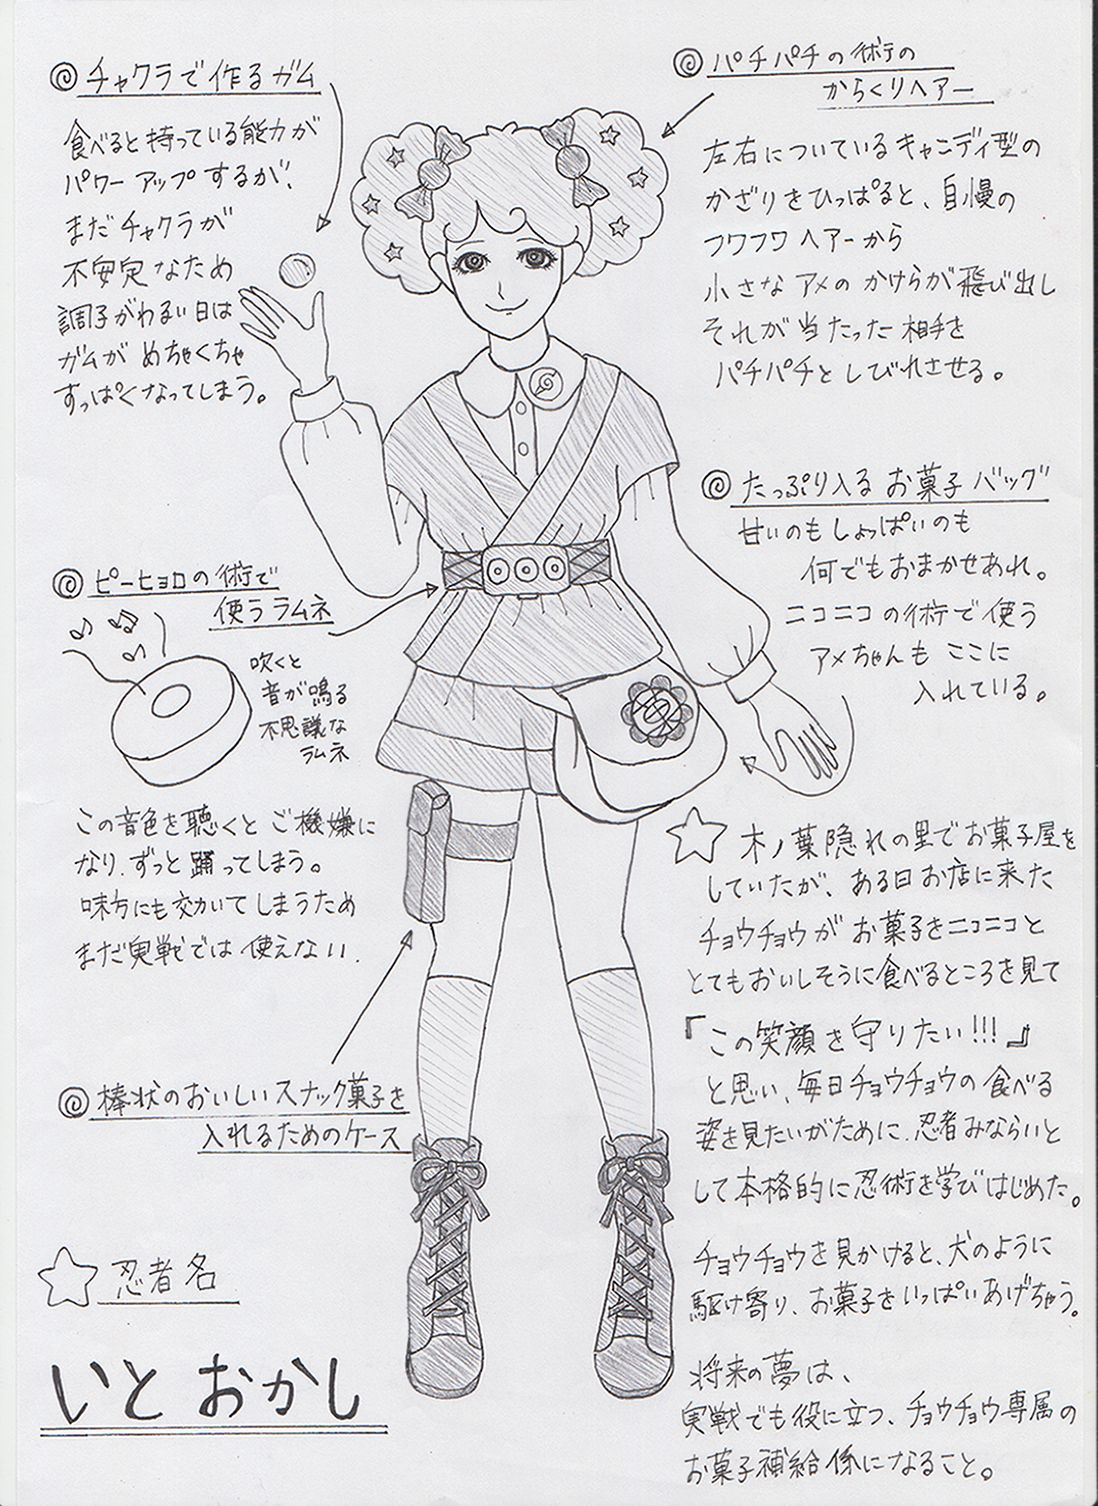 チャクラで作るガム
食べると持っている能力が
パワーアップするが、
まだチャクラが
不安定なため
調子がわるい日は
ガムがめちゃくちゃ
すっぱくなってしまう。
パチパチの術の
からくりヘアー
左右についているキャンディ型の
かざりをひっぱると、自慢の
フワフワヘアーから
小さなアメのかけらが飛び出し
それが当たった相手を
パチパチとしびれさせる。
たっぷり入るお菓子バッグ
甘いのもしょっぱいのも
何でもおまかせあれ。
ニコニコの術で使う
アメちゃんもここに
入れている。
ピーヒョロの術で
使うラムネ
吹くと
音が鳴る
不思議な
ラムネ
この音色を聴くとご機嫌に
なり、ずっと踊ってしまう。
味方にも効いてしまうため
まだ実戦では使えない.
棒状のおいしいスナック菓子を
入れるためのケース
忍者名
いとおかし
木ノ葉隠れの里でお菓子屋を
していたが、ある日お店に来た
チョウチョウがお菓子をニコニコと
とてもおいしそうに食べるところを見て
『この笑顔を守りたい!!!』
と思い、毎日チョウチョウの食べる
姿を見たいがために、忍者みならいと
して本格的に忍術を学びはじめた。
チョウチョウを見かけると、犬のように
駆け寄り、お菓子をいっぱいあげちゃう。
将来の夢は、
実戦でも役に立つ、チョウチョウ専属の
お菓子補給係になること。